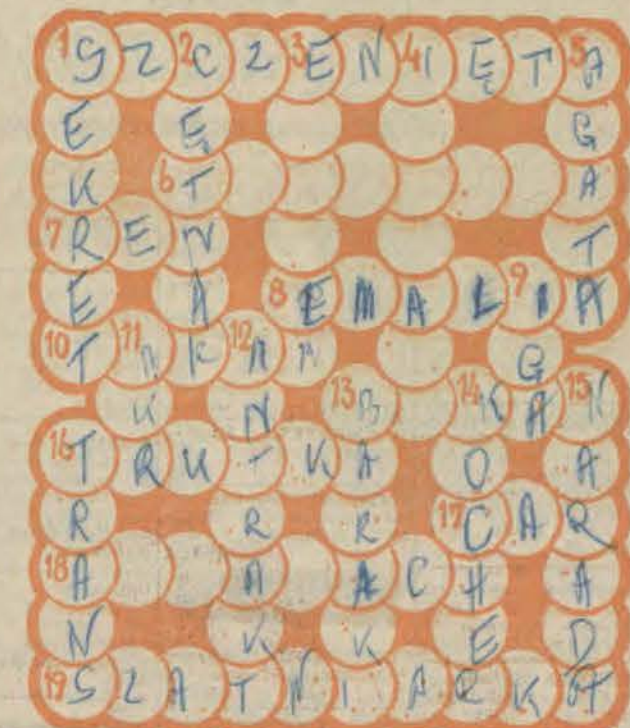 1S Z 2C Z 3E N 4I Ę T 5A
E Ę G
K 6T A
7R E N T
E A 8E M A L 9I A
10T 11A K 12A G
K N 13B 14K A 15K
16T R U T K A O A
R R R 17C A R
18A A A C H A
N K K E D
19S Z A T N I A R K A